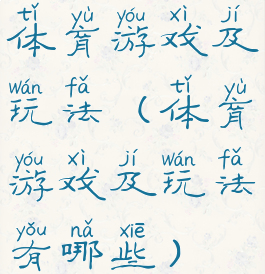 tǐ yù yóu xì jí
体育游戏及
wán fǎ tǐ yù
玩法（体育
yóu xì jí wán fǎ
游戏及玩法
yǒu nǎ xiē
有哪些）